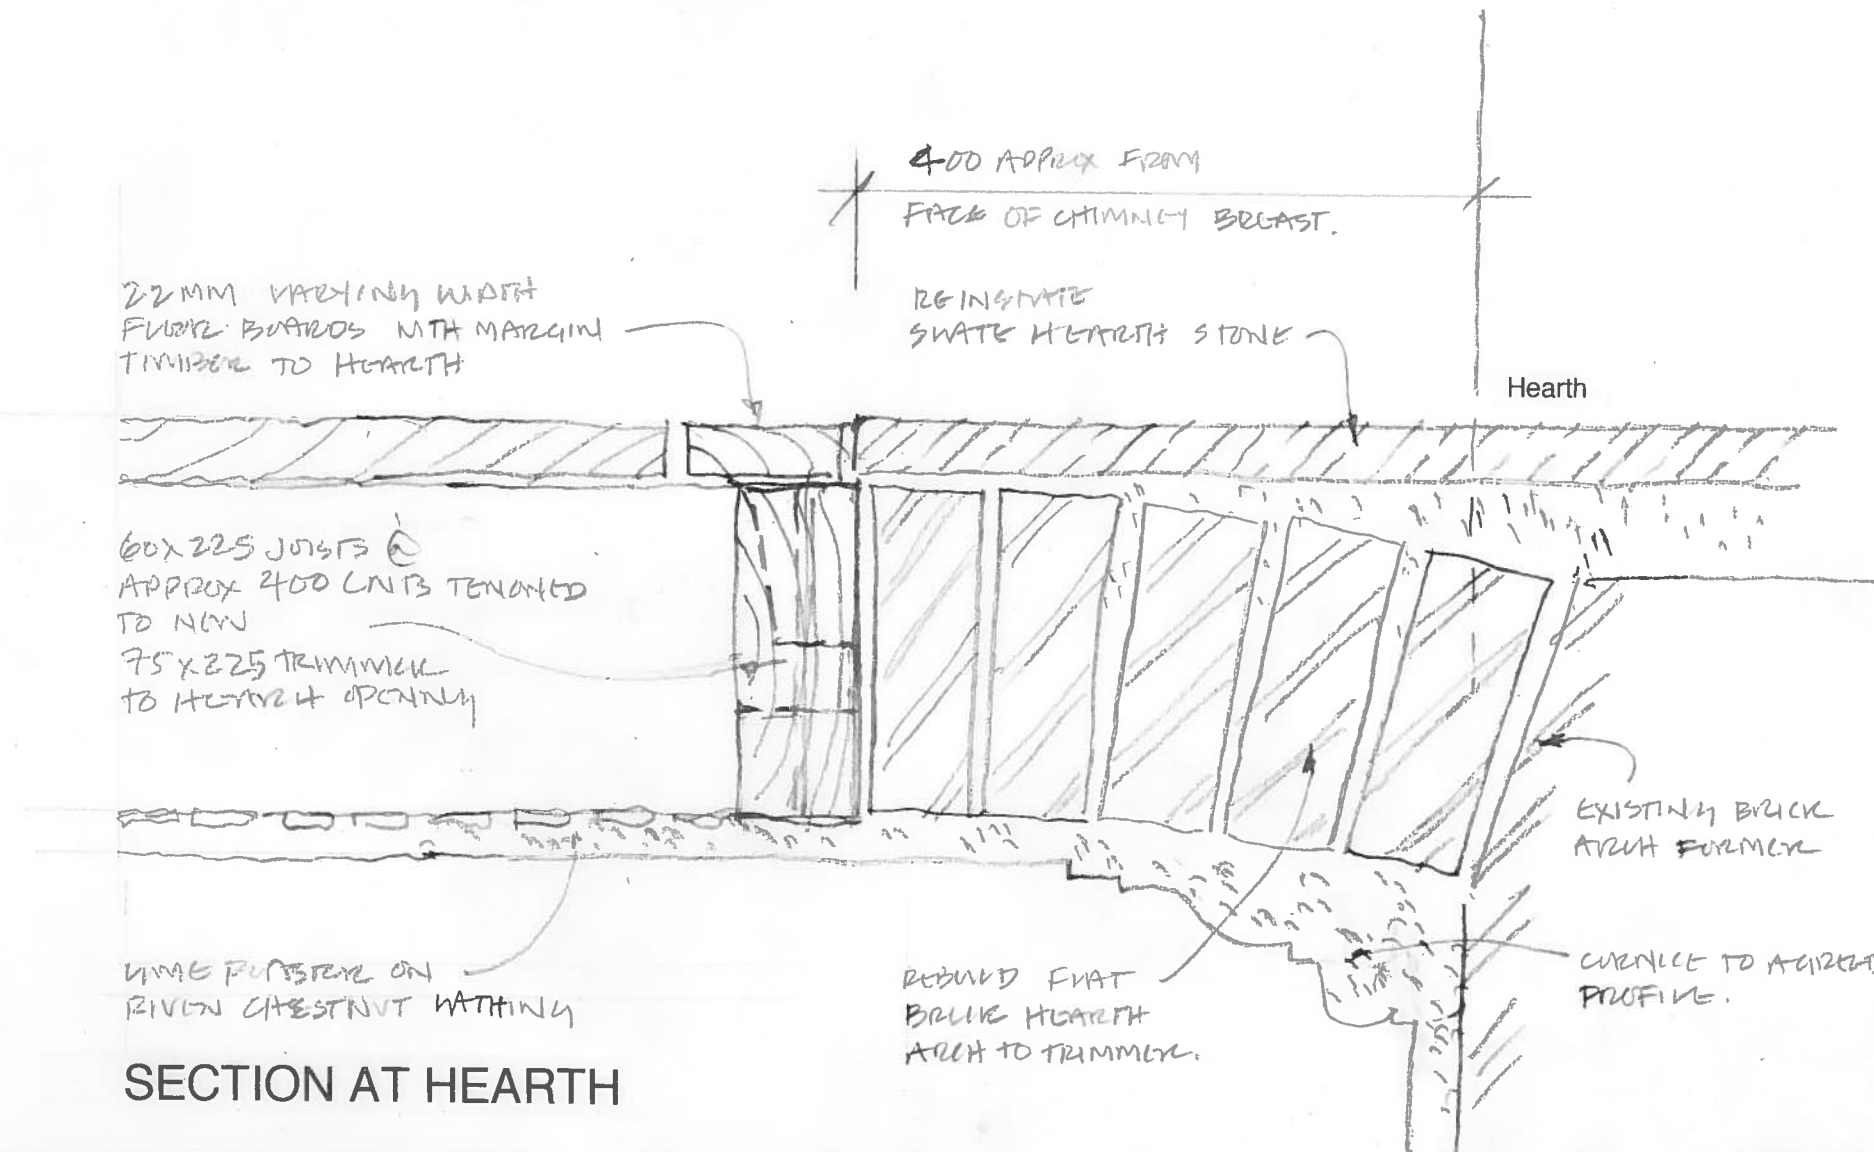 400 APPROX FROM
FACE OF CHIMNEY BREAST.
22MM VARYING WIDTH
FLOOR BOARDS WITH MARGIN
TIMBER TO HEARTH
REINSTATE
SLATE HEARTH STONE
Hearth
60x225 JOISTS @
APPROX 400 CNTS TENONED
TO NEW
75x225 TRIMMER
TO HEARTH OPENING
EXISTING BRICK
ARCH FORMER
LIME PLASTER ON
RIVEN CHESTNUT LATHING
REBUILD FLAT
BRICK HEARTH
ARCH TO TRIMMER.
CORNICE TO AGREED
PROFILE.
SECTION AT HEARTH